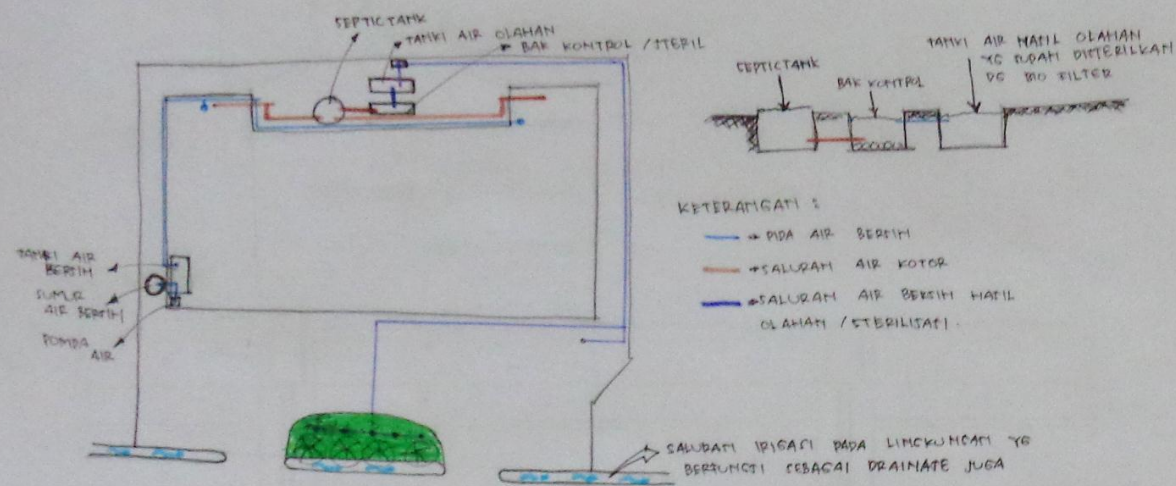 SEPTICTANK
TANKI AIR OLAHAN
BAK KONTROL / STERIL
TANKI AIR
BERSIH
SUMUR
AIR BERSIH
POMPA
AIR
SEPTICTANK
BAK KONTROL
TANKI AIR HASIL OLAHAN
YG SUDAH DISTERILKAN
DG BIO FILTER
KETERANGAN :
PIPA AIR BERSIH
SALURAN AIR KOTOR
SALURAN AIR BERSIH HASIL
OLAHAN / STERILISASI.
SALURAN IRIGASI PADA LINGKUNGAN YG
BERFUNGSI SEBAGAI DRAINASE JUGA